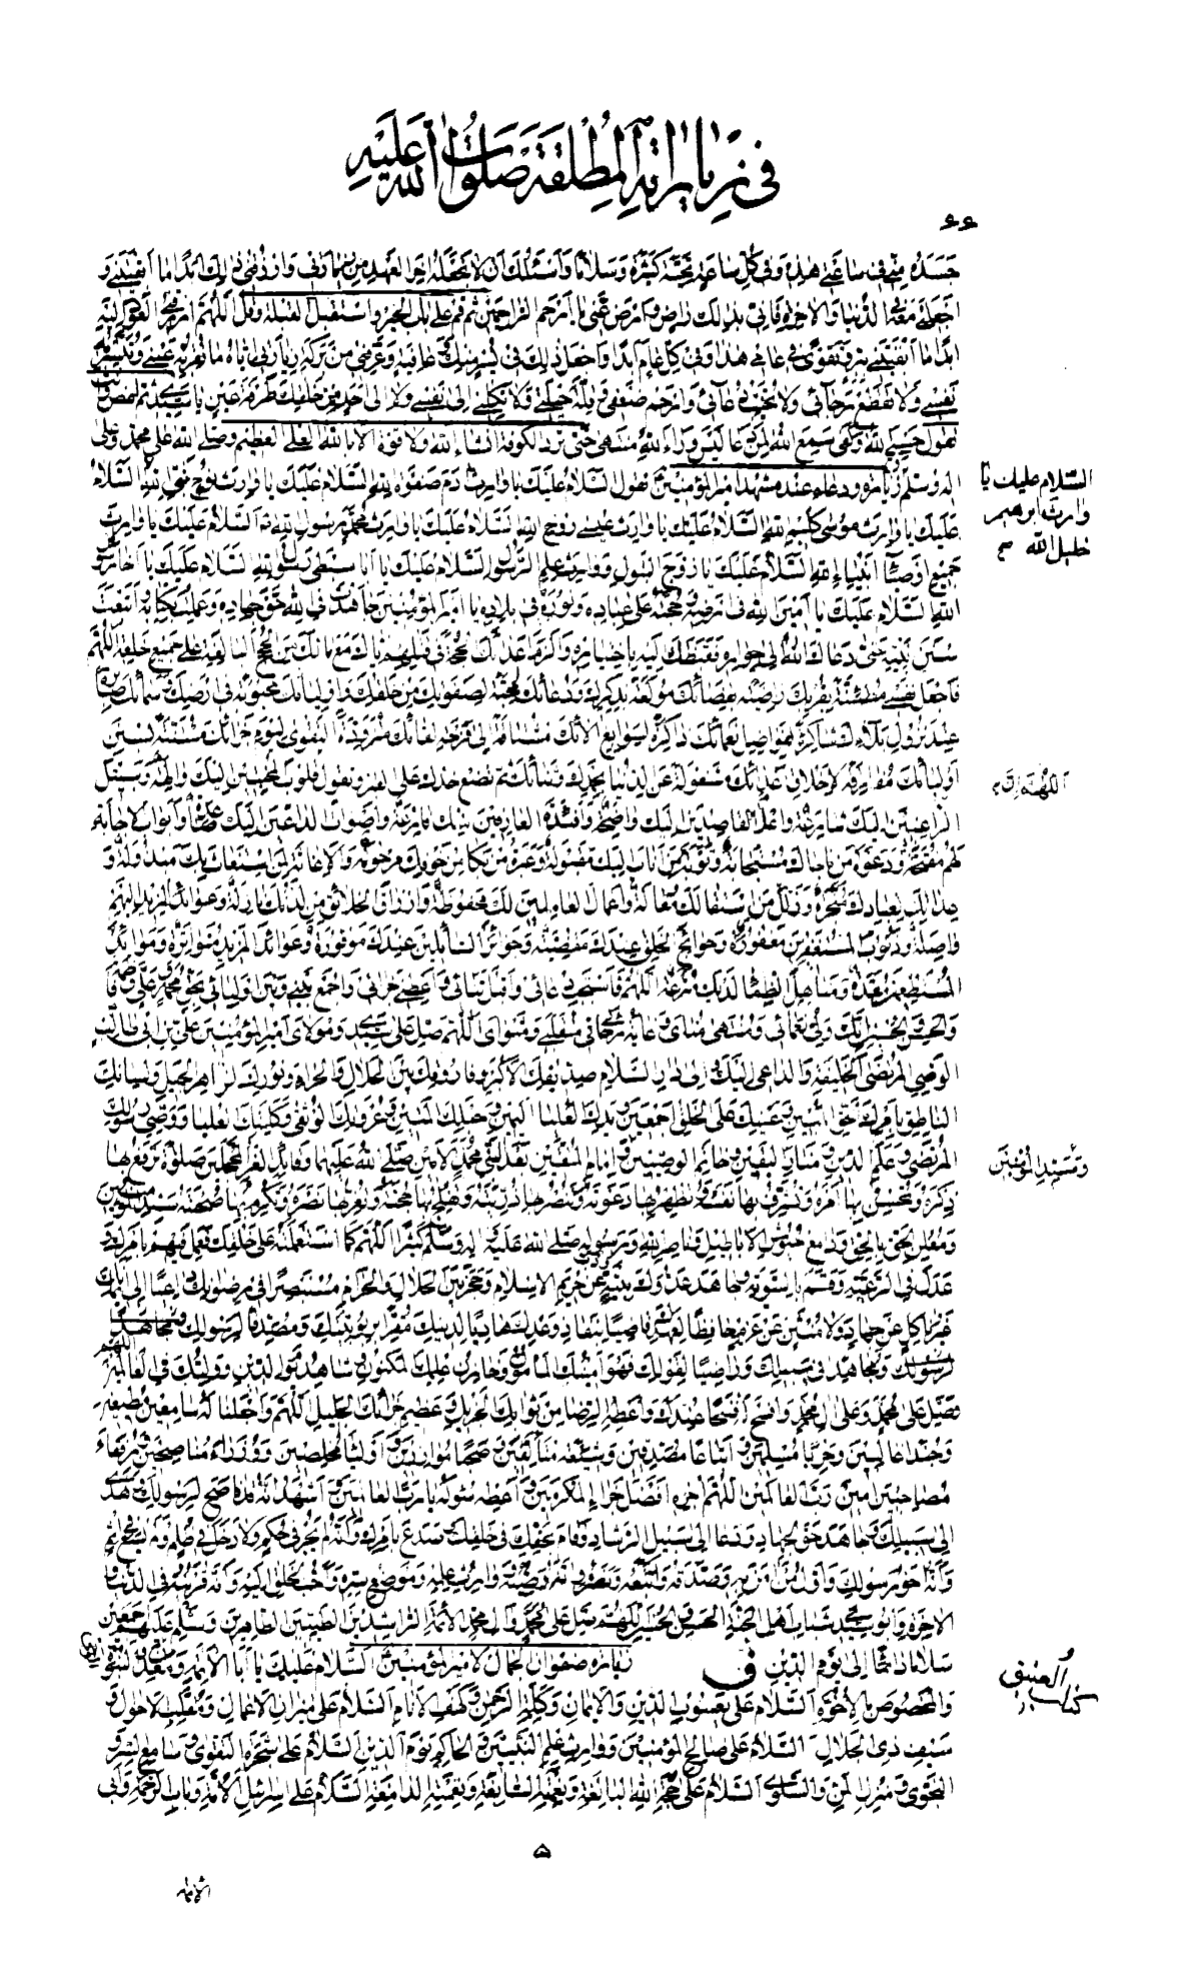 في زياراته المطلقة صلوات الله عليه
٦٦
جسده مني في ساعتي هذه وفي كل ساعة تحية كثيرة وسلاما وأسئلك أن لا تجعله آخر العهد من وارزقني ذلك أبدا ما أبقيتني و
اجعلني معه في الدنيا والآخرة فإني بذلك راض فارض عني يا أرحم الراحمين ثم قم على باب الحجر واستقبل القبلة وقل اللهم
أبدا ما أبقيتني في عامي هذا وفي كل عام أبدا واجعل ذلك في يسر منك وعافية وعرفني من بركة زيارتي إياه ما تقر به عيني
نفسي ولا تقطع رجائي ولا تخيب دعائي وارحم ضعفي وقلة حيلتي ولا تكلني إلى نفسي ولا إلى أحد من خلقك طرفة عين يا سيدي ثم
تقول حسبي الله وكفى سمع الله لمن دعا ليس وراء الله منتهى حتى إنشاء الله ولا قوة إلا بالله العلي العظيم وصلى الله على محمد وعلى
آله وسلم زيارة ودعاء عند مشهد أمير المؤمنين تقول السلام عليك يا وارث آدم صفوة الله السلام عليك يا وارث نوح نبي الله السلام
عليك يا وارث موسى كليم الله السلام عليك يا وارث عيسى روح الله السلام عليك يا وارث محمد رسول الله السلام عليك يا وارث
جميع أوصياء أنبياء الله السلام عليك يا زوج البتول ووارث علم الرسول السلام عليك يا السلام عليك يا
الله السلام عليك يا أمين الله في أرضه وحجته على عباده ونوره في بلاده يا أمير المؤمنين جاهدت في الله حق جهاده وعملت بكتابه اتبعت
سنن نبيه حتى دعاك الله إلى جواره وقبضك إليه باختياره وألزم أعدائك الحجة في قتلهم إياك مع ما لك من الحجج البالغة على جميع خلقه اللهم
فاجعل نفسي مطمئنة بقدرك راضية بقضائك مولعة بذكرك ودعائك محبة لصفوتك من خلقك وأوليائك محبوبة في أرضك وسمائك صابرة
عند نزول بلائك شاكرة لفواضل نعمائك ذاكرة لسوابغ آلائك مشتاقة إلى فرحة لقائك متزودة التقوى ليوم جزائك مستنة بسنن
أوليائك مفارقة لأخلاق أعدائك مشغولة عن الدنيا بحمدك وثنائك ثم تضع خدك على القبر وتقول قلوب المخبتين إليك والهة وسبل
الراغبين إليك شارعة وأعلام القاصدين إليك واضحة وأفئدة العارفين منك فازعة وأصوات الداعين إليك صاعدة وأبواب الإجابة
لهم مفتحة ودعوة من ناجاك مستجابة وتوبة من أناب إليك مقبولة وعبرة من بكا من خوفك مرحومة والإغاثة لمن استغاث بك مبذولة و
عداتك لعبادك منجزة وزلل من استقالك مقالة وأعمال العاملين لك محفوظة وأرزاق الخلائق من لدنك نازلة وعوائد المزيد إليهم
واصلة وذنوب المستغفرين مغفورة وحوائج خلقك عندك مقضية وجوائز السائلين عندك موفورة وعوائد المزيد متواترة وموائد
المستطعمين معدة ومناهل الظماء لديك مترعة اللهم فاستجب دعائي واقبل ثنائي وأعطني جزائي واجمع بيني وبين أوليائي بحق محمد وعلي
والحسن والحسين إنك ولي نعمائي ومنتهى مناي وغاية رجائي في منقلبي ومثواي اللهم صل على سيدي ومولاي أمير المؤمنين علي بن أبي طالب
الوصي المرتضى الخليفة والداعي إليك وإلى دار السلام صديقك الأكبر وفاروقك بين الحلال والحرام ونورك الزاهر الجميل ولسانك
الناطق بأمرك الحق المبين وعينك على الخلق أجمعين ويدك العليا اليمين وحبلك المتين وعروتك الوثقى وكلمتك العليا ووصي رسولك
المرتضى وعلم الدين ومنار اليقين وخاتم الوصيين وإمام المتقين بعد النبي محمد الأمين صلى الله عليهما وقائد الغر المحجلين صلوة ترفع بها
ذكره وتحسن بها أمره وتشرف بها نفسه وتظهر بها دعوته وتنصر بها ذريته وتفلج بها حجته وتعز بها نصره وتكرم بها صحبته سيد المؤمنين
ومعلن الحق بالحق ودامغ جيوش الأباطيل وناصر الله ورسوله صلى الله عليه وآله وسلم كثيرا اللهم كما استعملته على خلقك فعمل فيهم بأمرك
عدلك في الرعية وقسم بالسوية وجاهد عدوك بنية وذب عن حريم الإسلام وحجز بين الحلال والحرام مستبصرا في رضوانك داعيا إلى إيمانك
غير ناكل عن جهاد ولا منثن عن عزم حافظا لعهدك قاضيا بنفاذ وعدك هاديا لدينك مقرا بربوبيتك ومصدقا لرسولك ومجاهدا
لرسولك ومجاهدا في سبيلك وراضيا لقولك فهو أمينك المأمون وخازن علمك المكنون وشاهد يوم الدين ووليك في العالمين اللهم
فصل على محمد وعلى آل محمد وافسح له فسحا عندك وأعطه الرضا من ثوابك الجزيل وعظيم جزائك الجليل اللهم واجعلنا له سامعين مطيعين
وجندا غالبين وحزبا مسلمين وأتباعا مصدقين وشيعة متألفين وصحبا مؤازرين وأولياء مخلصين ووزراء مناصحين ورفقاء
مصاحبين آمين رب العالمين اللهم اجزه أفضل جزاء المكرمين وأعطه سؤله يا رب العالمين وأشهد أنه قد ناصح لرسولك وهدى
إلى سبيلك وجاهد حق الجهاد ودعا إلى سبيل الرشاد وقام بحقك في خلقك وصدع بأمرك وأنه لم يجر في حكم ولا دخل في ظلم ولم يسع في إثم
وأنه أخو رسولك وأول من آمن به وصدقه واتبعه ونصره وأنه وصيه ووارث علمه وموضع سره وأحب الخلق إليه وأنه قرينه في الدنيا و
الآخرة وأبو سيدي شباب أهل الجنة الحسن والحسين اللهم صل على محمد وآل محمد الأئمة الراشدين الطيبين الطاهرين وسلم عليهم أجمعين
سلاما دائما إلى يوم الدين ق زيارة صفوان الجمال لأمير المؤمنين السلام عليك يا أبا الأئمة ومعدن النبوة
والمخصوص بالأخوة السلام على يعسوب الدين والإيمان وكلمة الرحمن وكهف الأنام السلام على ميزان الأعمال ومقلب الأحوال و
سيف ذي الجلال السلام على صالح المؤمنين ووارث علم النبيين والحاكم يوم الدين السلام على شجرة التقوى وسامع السر و
النجوى ومنزل المن والسلوى السلام على حجة الله البالغة ونعمته السابغة ونقمته الدامغة السلام على إسرائيل الأمة وباب الرحمة وأبي
السلام عليك يا
وارث ابرهيم
خليل الله
اللهم إن
وسيد المؤمنين
العتيق
الأئمة